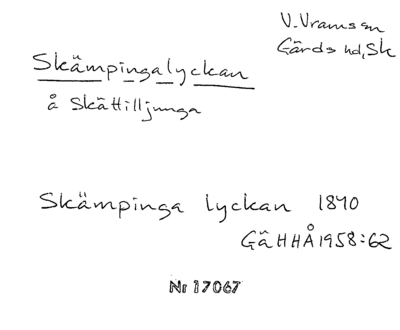 V. Vram sn
Gärds hd, Sk
Skämpingalyckan
å Skättilljunga
Skämpinga lyckan 1840
GäHHÅ 1958:62
Nr 17067